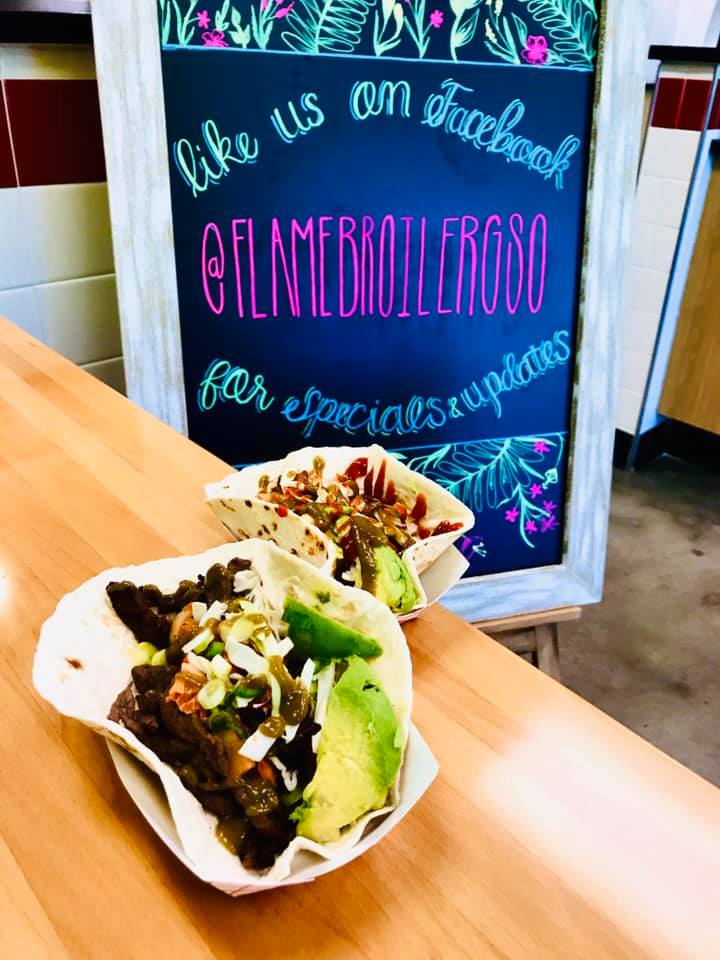 like us on Facebook
@FLAMEBROILERGSO
for specials & updates